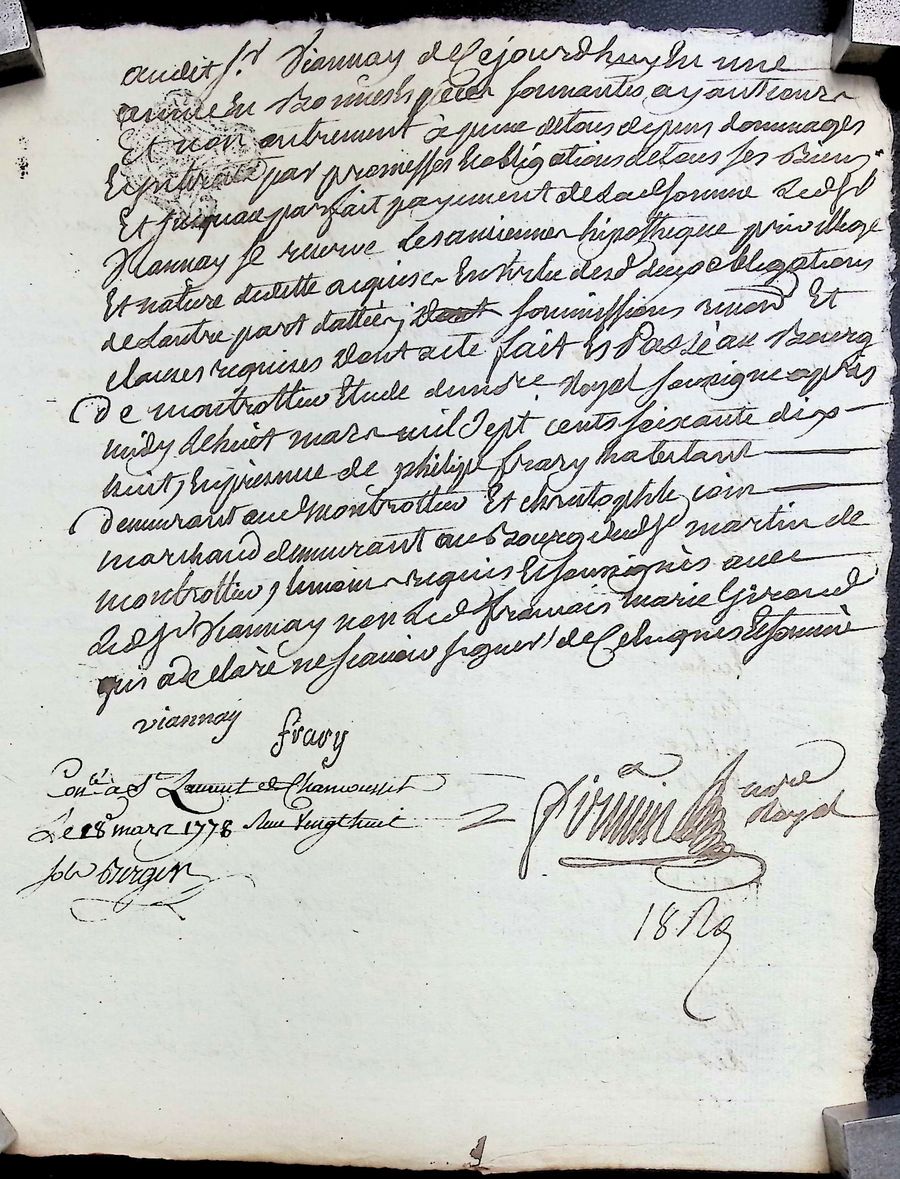 audit Sr. Viannay de Cejourdhuy En une
année En Bonnes Espèces sonnantes ayant cours
Et non autrement à peine de tous depens dommages
Et interets par promesses Et obligations de tous ses Biens
Et jusquau parfait payement de lad somme Led Sr
Viannay se reserve les anciennes hipotheque privillege
Et nature de dette acquises En vertu desd deux obligations
de lautre part dattées, Dont soumissions renond Et
clauses requises Dont acte fait Et Passé au Bourg
De montrottier Etude du nore Royal soussigné après
midy le huit mars mil Sept cents soixante dix
huit, En presence de philipe frary habitant
Demeurant aud montrottier Et christophle
marchand demeurant au Bourg dud St martin de
montrottier, temoins requis Et soussignés avec
Led Sr Viannay non Led francois marie Giraud
qui a declaré ne scavoir signer de Ce Enquis Et sommé
viannay
frary
Conlé à St Laurent de Chamousset
Le 18 mars 1778 Reçu vingt huit
sols Berger
nore
Royal